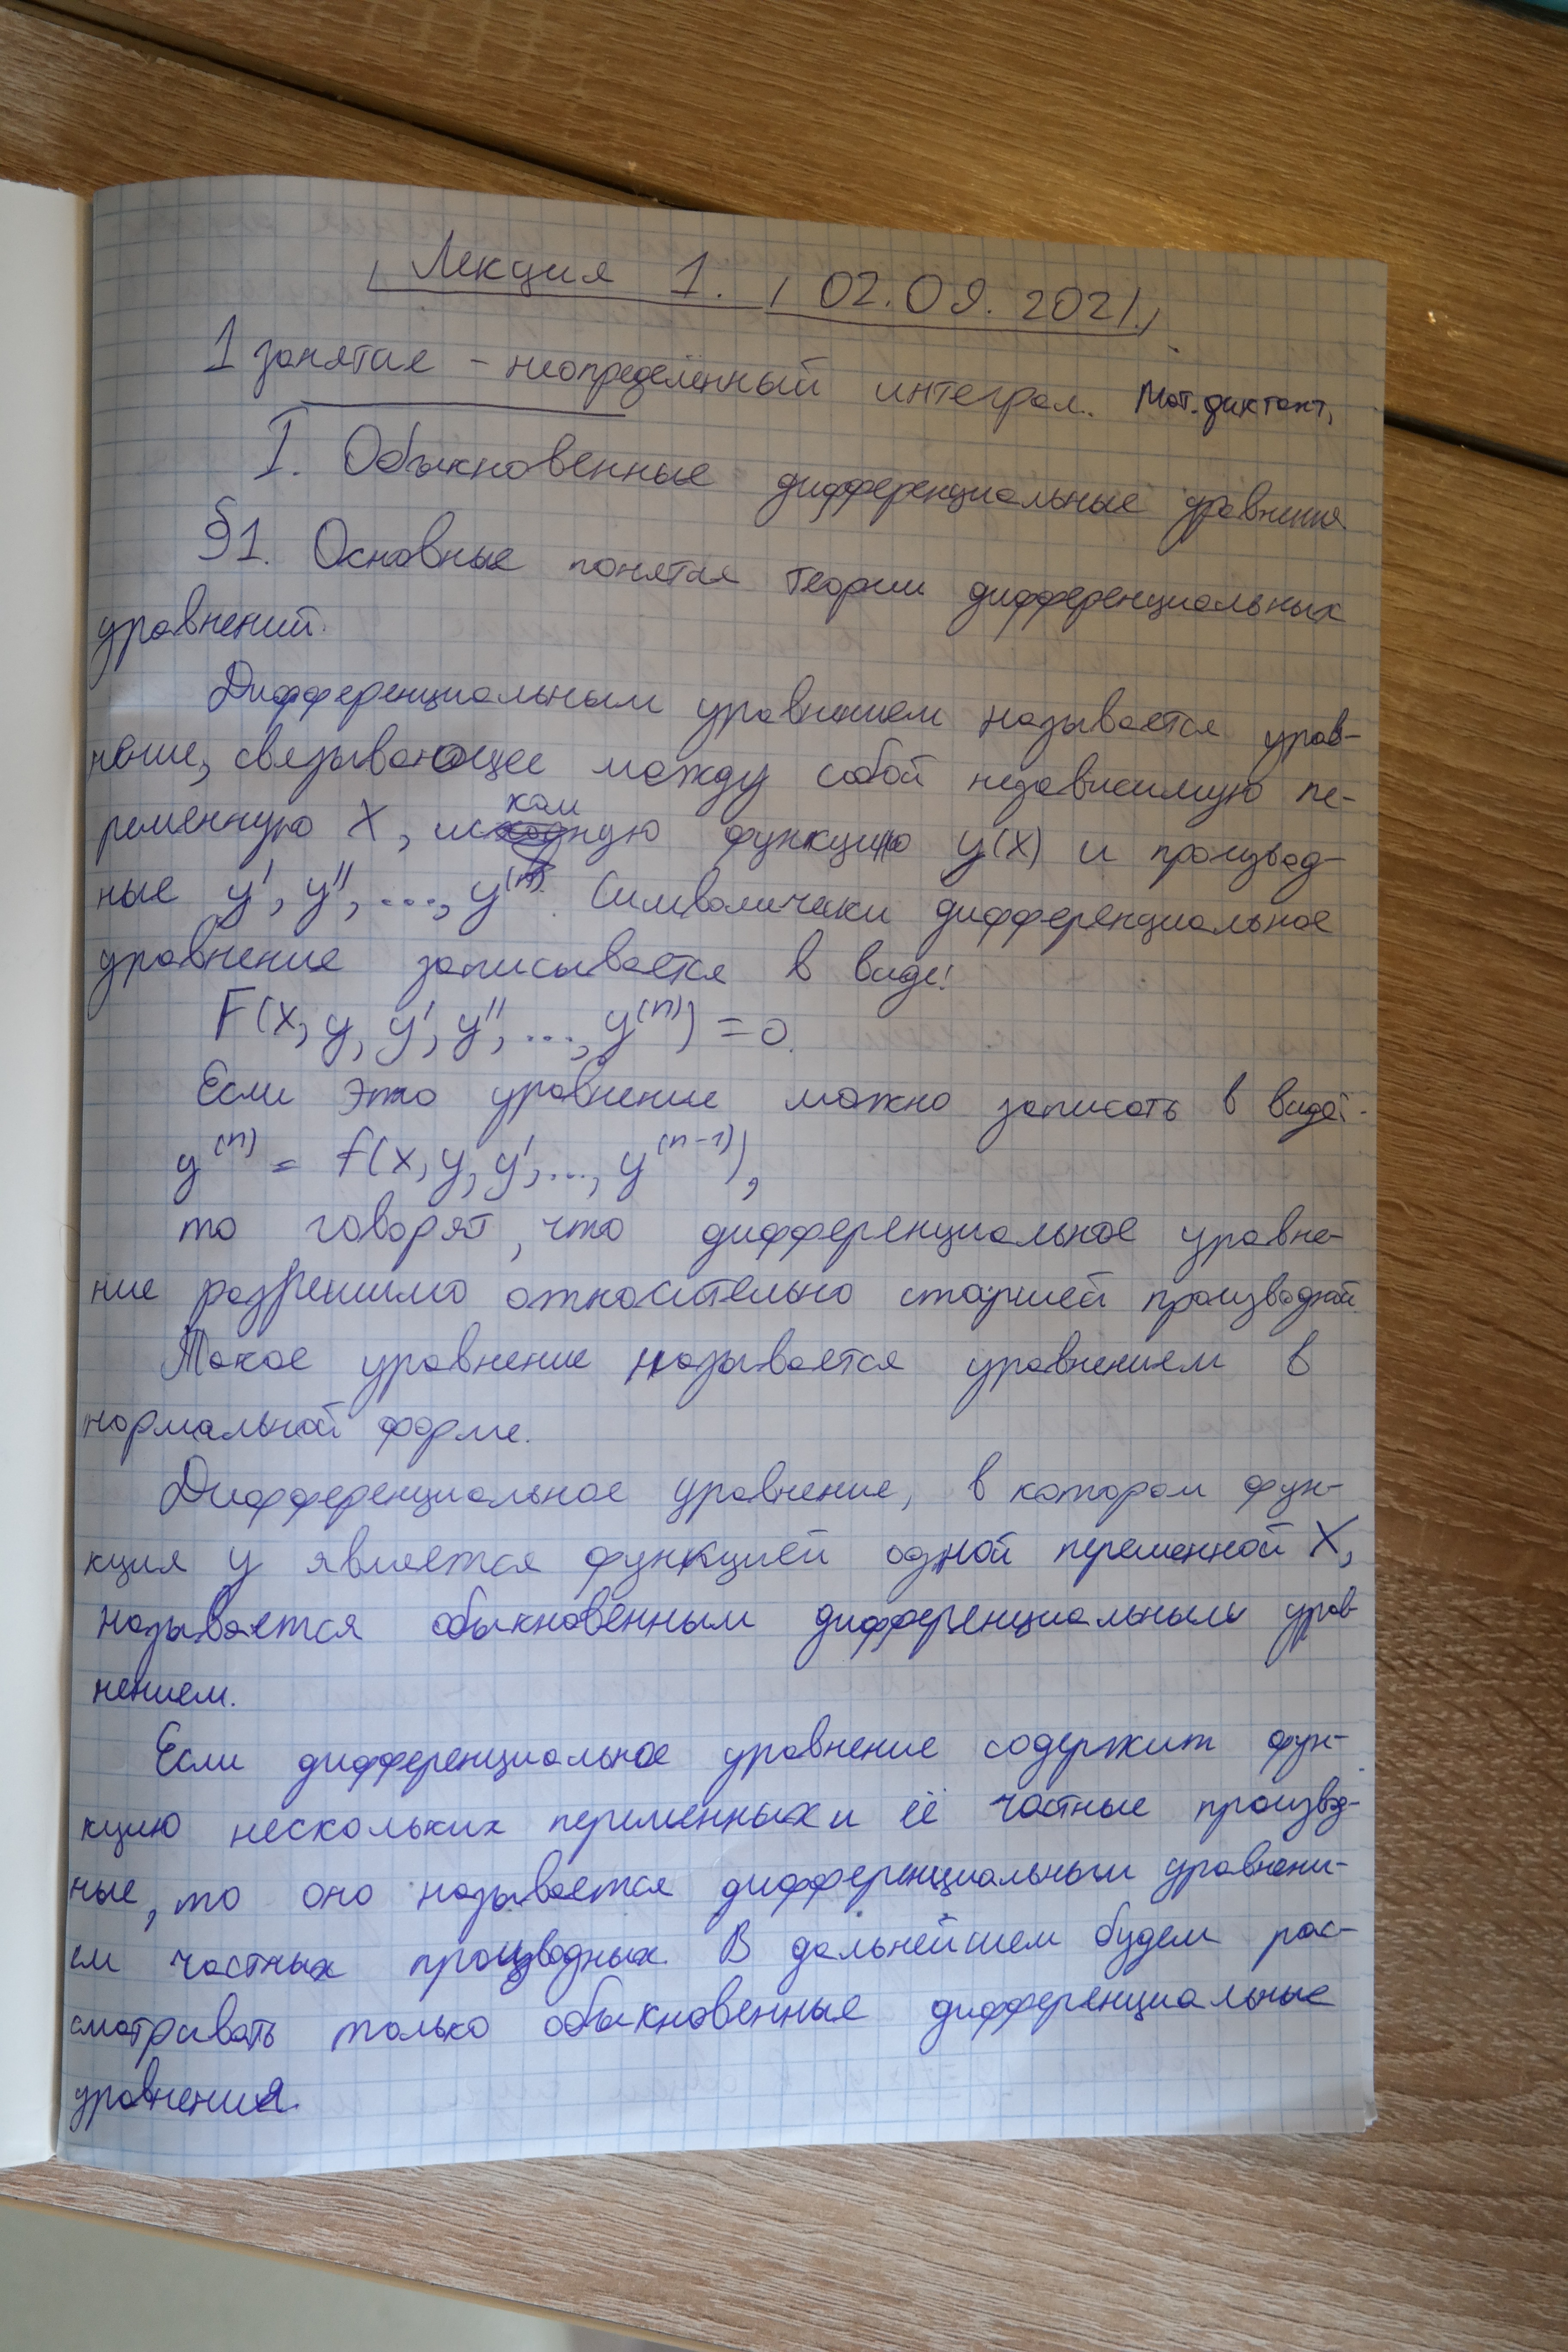 Лекция 1. 02.09.2021.
1 занятие - неопределённый интеграл. Мат. диктант,
I. Обыкновенные дифференциальные уравнения
§1. Основные понятия теории дифференциальных
уравнений.
Дифференциальным уравнением называется урав-
нение, связывающее между собой независимую пе-
ременную x, искомую функцию y(x) и производ-
ные y', y'', ..., y⁽ⁿ⁾. Символически дифференциальное
уравнение записывается в виде:
F(x, y, y', y'', ..., y⁽ⁿ⁾) = 0.
Если это уравнение можно записать в виде:
y⁽ⁿ⁾ = f(x, y, y', ..., y⁽ⁿ⁻¹⁾),
то говорят, что дифференциальное уравне-
ние разрешимо относительно старшей производной.
Такое уравнение называется уравнением в
нормальной форме.
Дифференциальное уравнение, в котором фун-
кция y является функцией одной переменной X,
называется обыкновенным дифференциальным урав-
нением.
Если дифференциальное уравнение содержит фун-
кцию нескольких переменных и её частные производ-
ные, то оно называется дифференциальным уравнени-
ем частных производных. В дальнейшем будем рас-
сматривать только обыкновенные дифференциальные
уравнения.